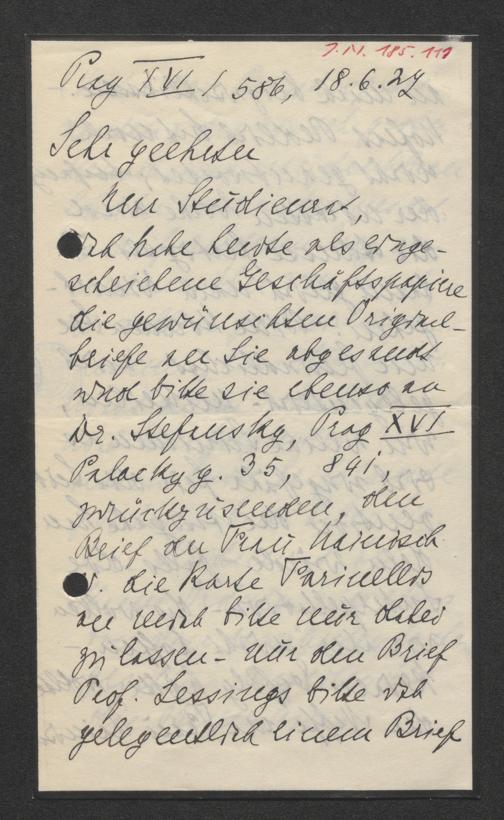 J.N. 185.119
Prag XVI / 586, 18.6.27
Sehr geehrter
Herr Studienrat,
Ich habe heute als einge-
schriebene Geschäftspapiere
die gewünschten Original-
briefe an Sie abgesandt
und bitte sie ebenso an
Dr. Stefansky, Prag XVI
Palacky g. 35, 841,
zurückzusenden, den
Brief der Frau Hainisch
u. die Karte Farinellis
an mich bitte nur dabei
zu lassen - nur den Brief
Prof. Lessings bitte ich
gelegentlich einem Brief